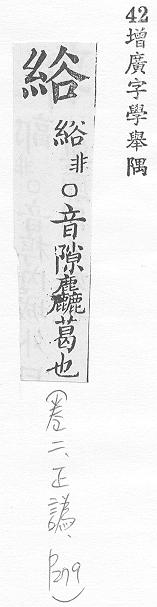 42增廣字學舉隅
綌綌非○音隙麤葛也
(卷二、正譌、P279)